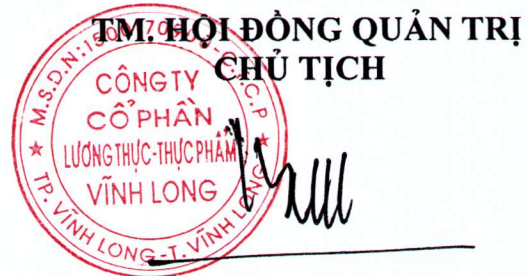 TM. HỘI ĐỒNG QUẢN TRỊ
CHỦ TỊCH
CÔNG TY
CỔ PHẦN
LƯƠNG THỰC-THỰC PHẨM
VĨNH LONG
TP. VĨNH LONG-T. VĨNH LONG